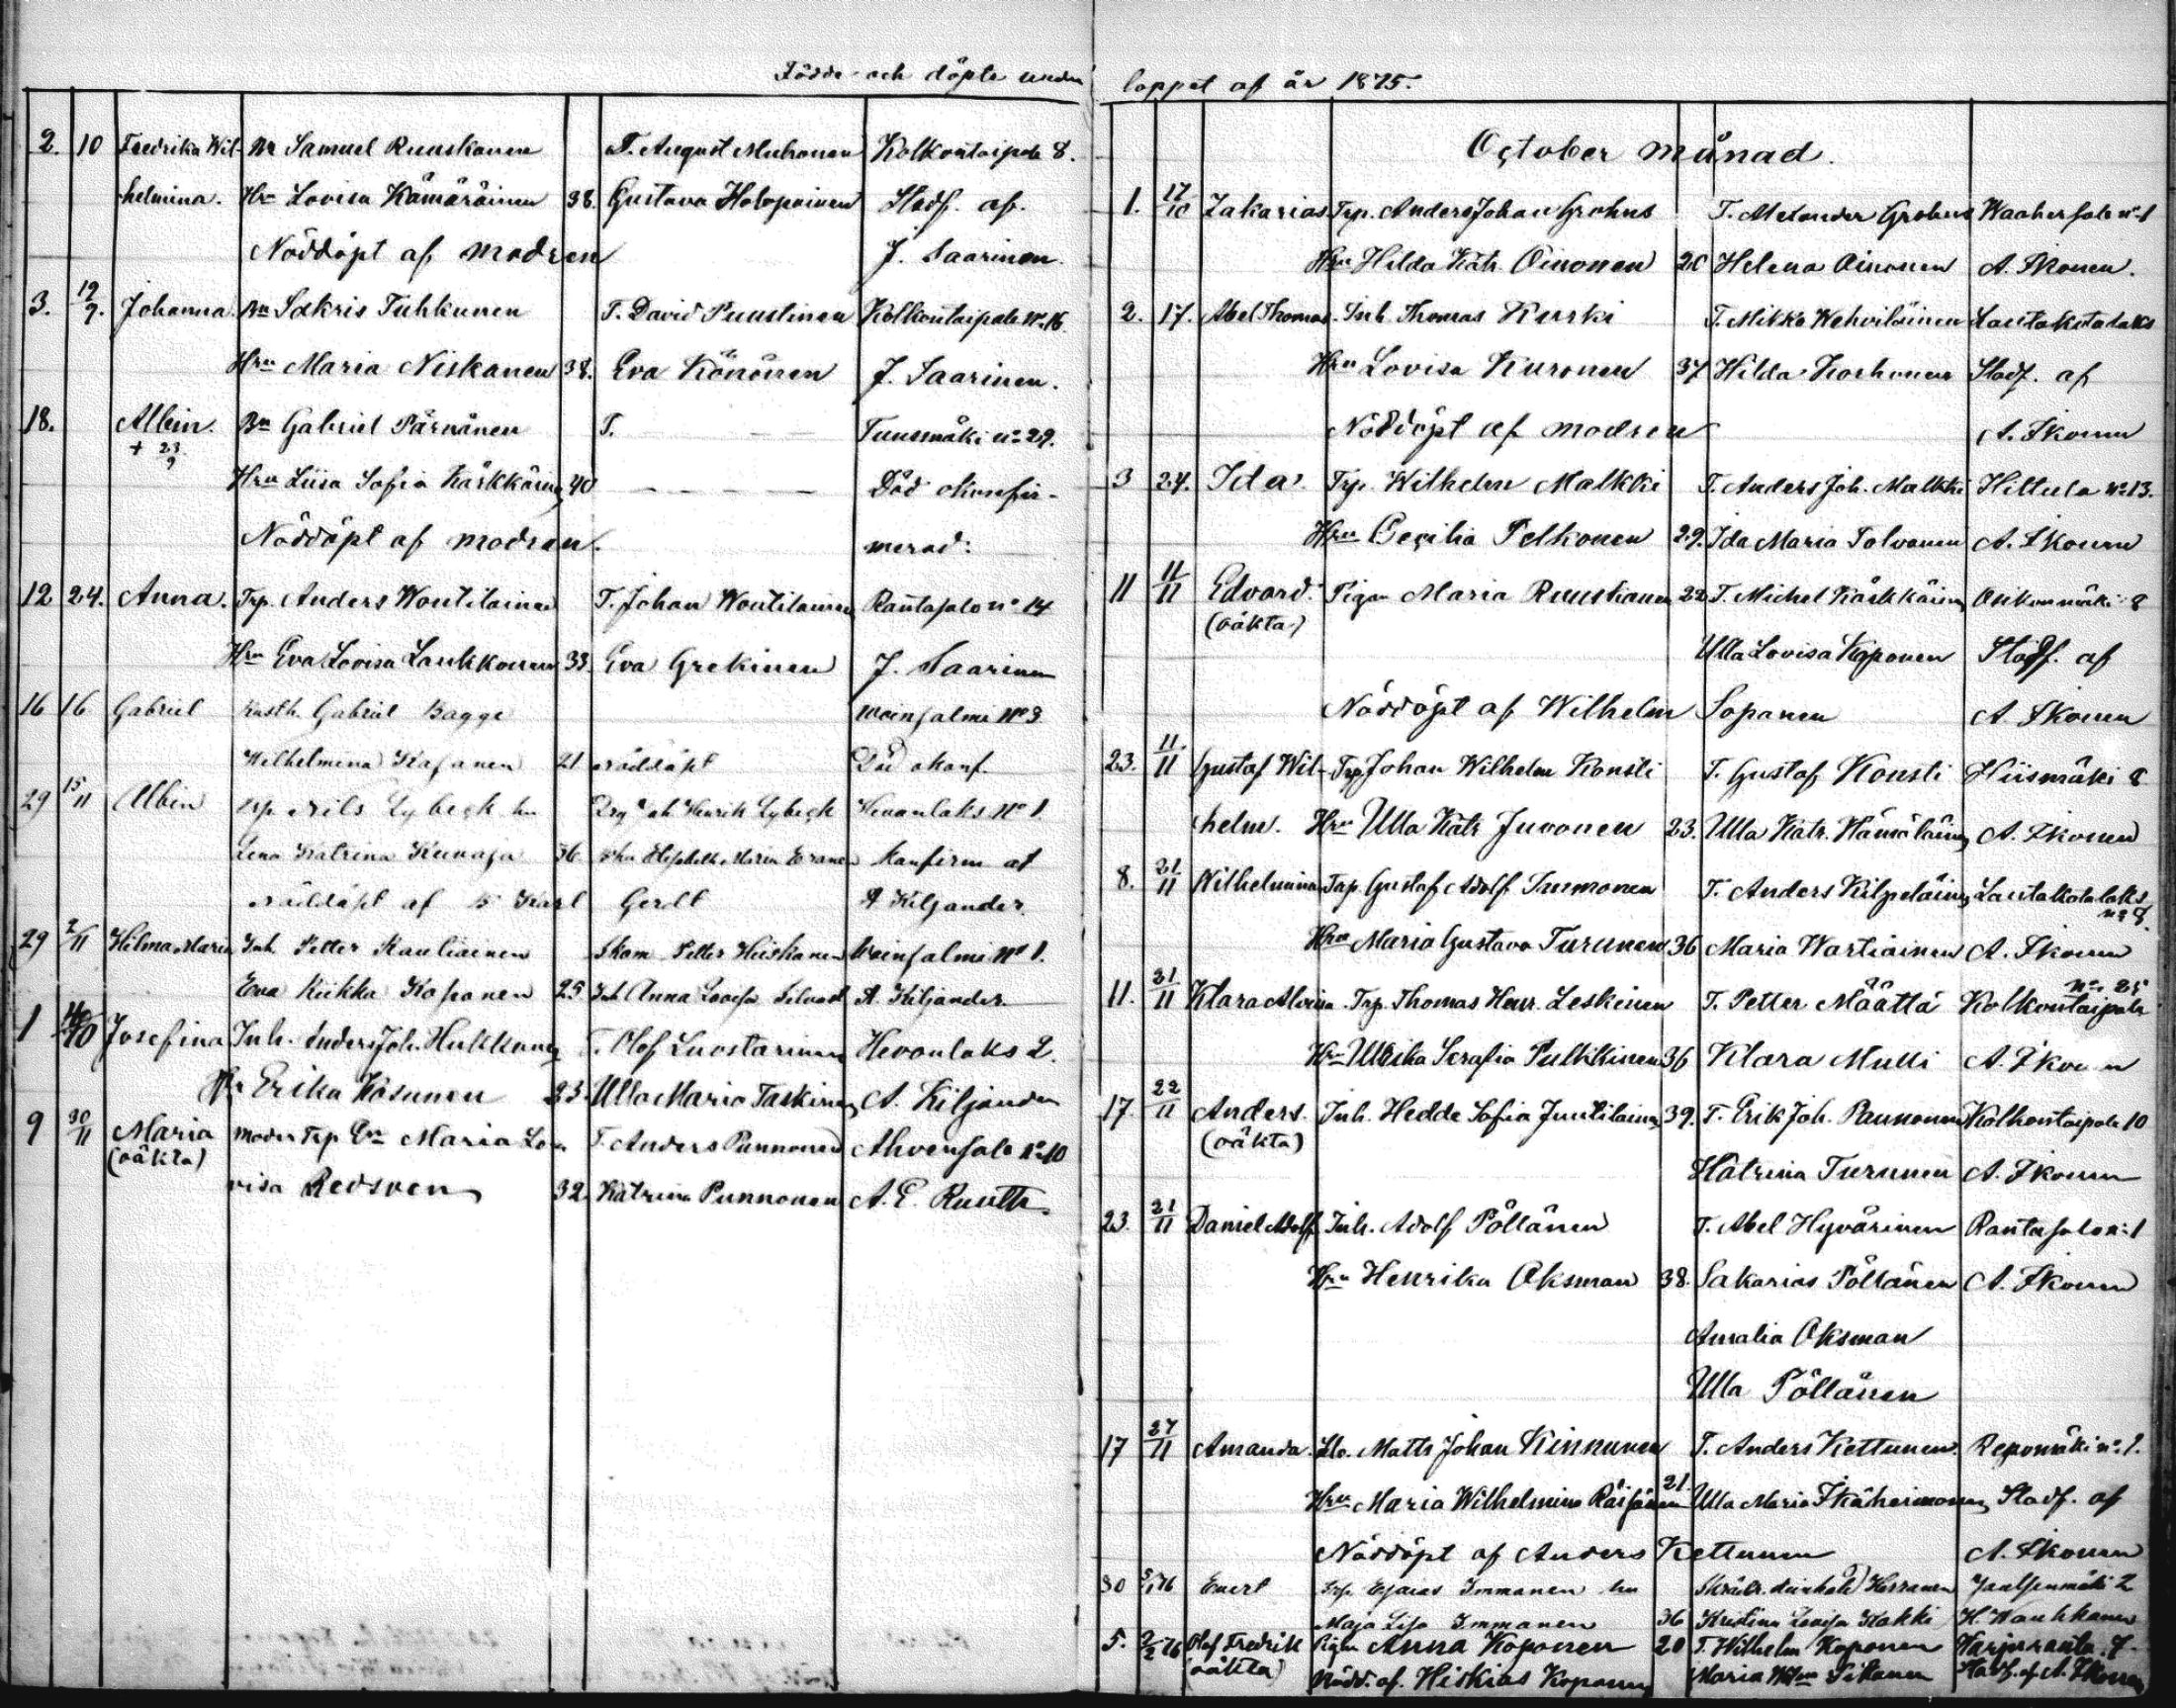 Födde och döpte under loppet af år 1875.
2. 10 Fredrika Wil- Bn Samuel Ruuskanen T. August Muhonen Kolkontaipale 8.
helmina. Hu Lovisa Kämäräinen 38. Gustava Holopainen Stadf. af.
Nöddöpt af modren J. Saarinen.
3. 19/9. Johanna. Bn Sakris Tuhkunen T. David Puustinen Kolkontaipale No 16.
Hru Maria Niskanen 38. Eva Könönen J. Saarinen.
18. Albin. Bn Gabriel Pärnänen T. — Tuusmäki no 29.
+ 23/9
Hru Liisa Sofia Kärkkäinen 40 — — — — Död okonfir-
Nöddöpt af modren. merad.
12 24. Anna. Trp. Anders Woutilainen T. Johan Woutilainen Rantasalo no 14
Hru Eva Lovisa Laukkonen 33. Eva Grekinen J. Saarinen
16 16 Gabriel Rusth. Gabriel Bagge Weinjalmi No 3
Wilhelmina Kajanen 21 nöddöpt Död okonf.
29 15/11 Albin Trp. Nils Lybeck hu Henrik Lybeck Hevonlaks No 1
Lena Katrina Kunaja 36 Elisabeth Maria Eranen konfirm af
nöddöpt af Karl Gerdt A Kiljander.
29 2/11 Hilma Maria Inh. Petter Rautiainen Skom. Petter Heiskanen Weinjalmi No 1.
Eva Kiikka Koponen 25 Inh Anna Lovisa A. Kiljander
1 10 Josefina Inh. Anders Joh. Hukkanen T. Olof Luostarinen Hevonlaks 2.
Hu Erika Käsunen 23. Ulla Maria Taskinen A. Kiljander
9 30/11 Maria Moder Trp Dr Maria Lo- T. Anders Punnonen Ahvensalo No 10
(oäkta)
visa Redsven 32. Katrina Punnonen A. E. Ruuth.
October månad.
1. 17/10 Zakarias Trp. Anders Johan Grohns T. Alexander Grohns Waahersalo no 1
Hru Hilda Katr. Oinonen 20 Helena Oinonen A. Ikonen.
2. 17. Abel Thomas. Inh. Thomas Kurki T. Mikko Wehviläinen Lautakotalaks
Hru Lovisa Kuronen 37 Hilda Korhonen Stadf. af
Nöddöpt af modren A. Ikonen
3 24. Ida. Trp. Wilhelm Malkki T. Anders Joh. Malkki Hiltula No 13.
Hru Cecilia Pelkonen 29. Ida Maria Tolvanen A. Ikonen
11 11/11 Edvard. Pigan Maria Ruuskanen 22 T. Michel Kärkkäinen Oikonmäki 8
(oäkta)
Ulla Lovisa Koponen Stadf. af
Nöddöpt af Wilhelm Sopanen A Ikonen
23. 11./11 Gustaf Wil- Trp Johan Wilhelm Konsti T. Gustaf Konsti Hiismäki 8
helm. Hru Ulla Katr. Juvonen 23. Ulla Katr. Hämäläinen A. Ikonen
8. 21/11 Wilhelmina Trp. Gustaf Adolf Immonen T. Anders Kilpeläinen Lautakotalaks
no 8.
Hru Maria Gustava Turunen 36 Maria Wartiainen A. Ikonen
11. 21/11 Klara Alvina. Trp. Thomas Henr. Leskinen T. Petter Määttä Kolkontaipale
no 25
Hu Ulrika Serafia Pulkkinen 36 Klara Mulli A. Ikonen
17. 22/11 Anders. Inh. Hedda Sofia Juutilainen 39. T. Erik Joh. Paunonen Kolkontaipale 10
(oäkta)
Katrina Turunen A. Ikonen
23. 21/11 Daniel Adolf Inh. Adolf Pöllänen T. Abel Hyvärinen Rantasalo no 1
Hru Henrika Oksman 38. Sakarias Pöllänen A. Ikonen
Amalia Oksman
Ulla Pöllänen
17 27/11 Amanda. Matts Johan Kinnunen T. Anders Kettunen. Repomäki no 1.
Hru Maria Wilhelmina Räisänen 21. Ulla Maria Ikäheimonen Stadf. af
Nöddöpt af Anders Kettunen A. Ikonen
30 76 Evert Trp. Esaias Immonen hu Herranen 2
Maja Lisa Immonen 36 Kristina Lovisa Kokki H. Kauhkanen
5. 2/2 76 Olof Fredrik Pigan Anna Koponen 20 T. Wilhelm Koponen Harjuranta 7
(oäkta) Nödd. af. Heskias Koponen Maria Stadf. af A. Ikonen